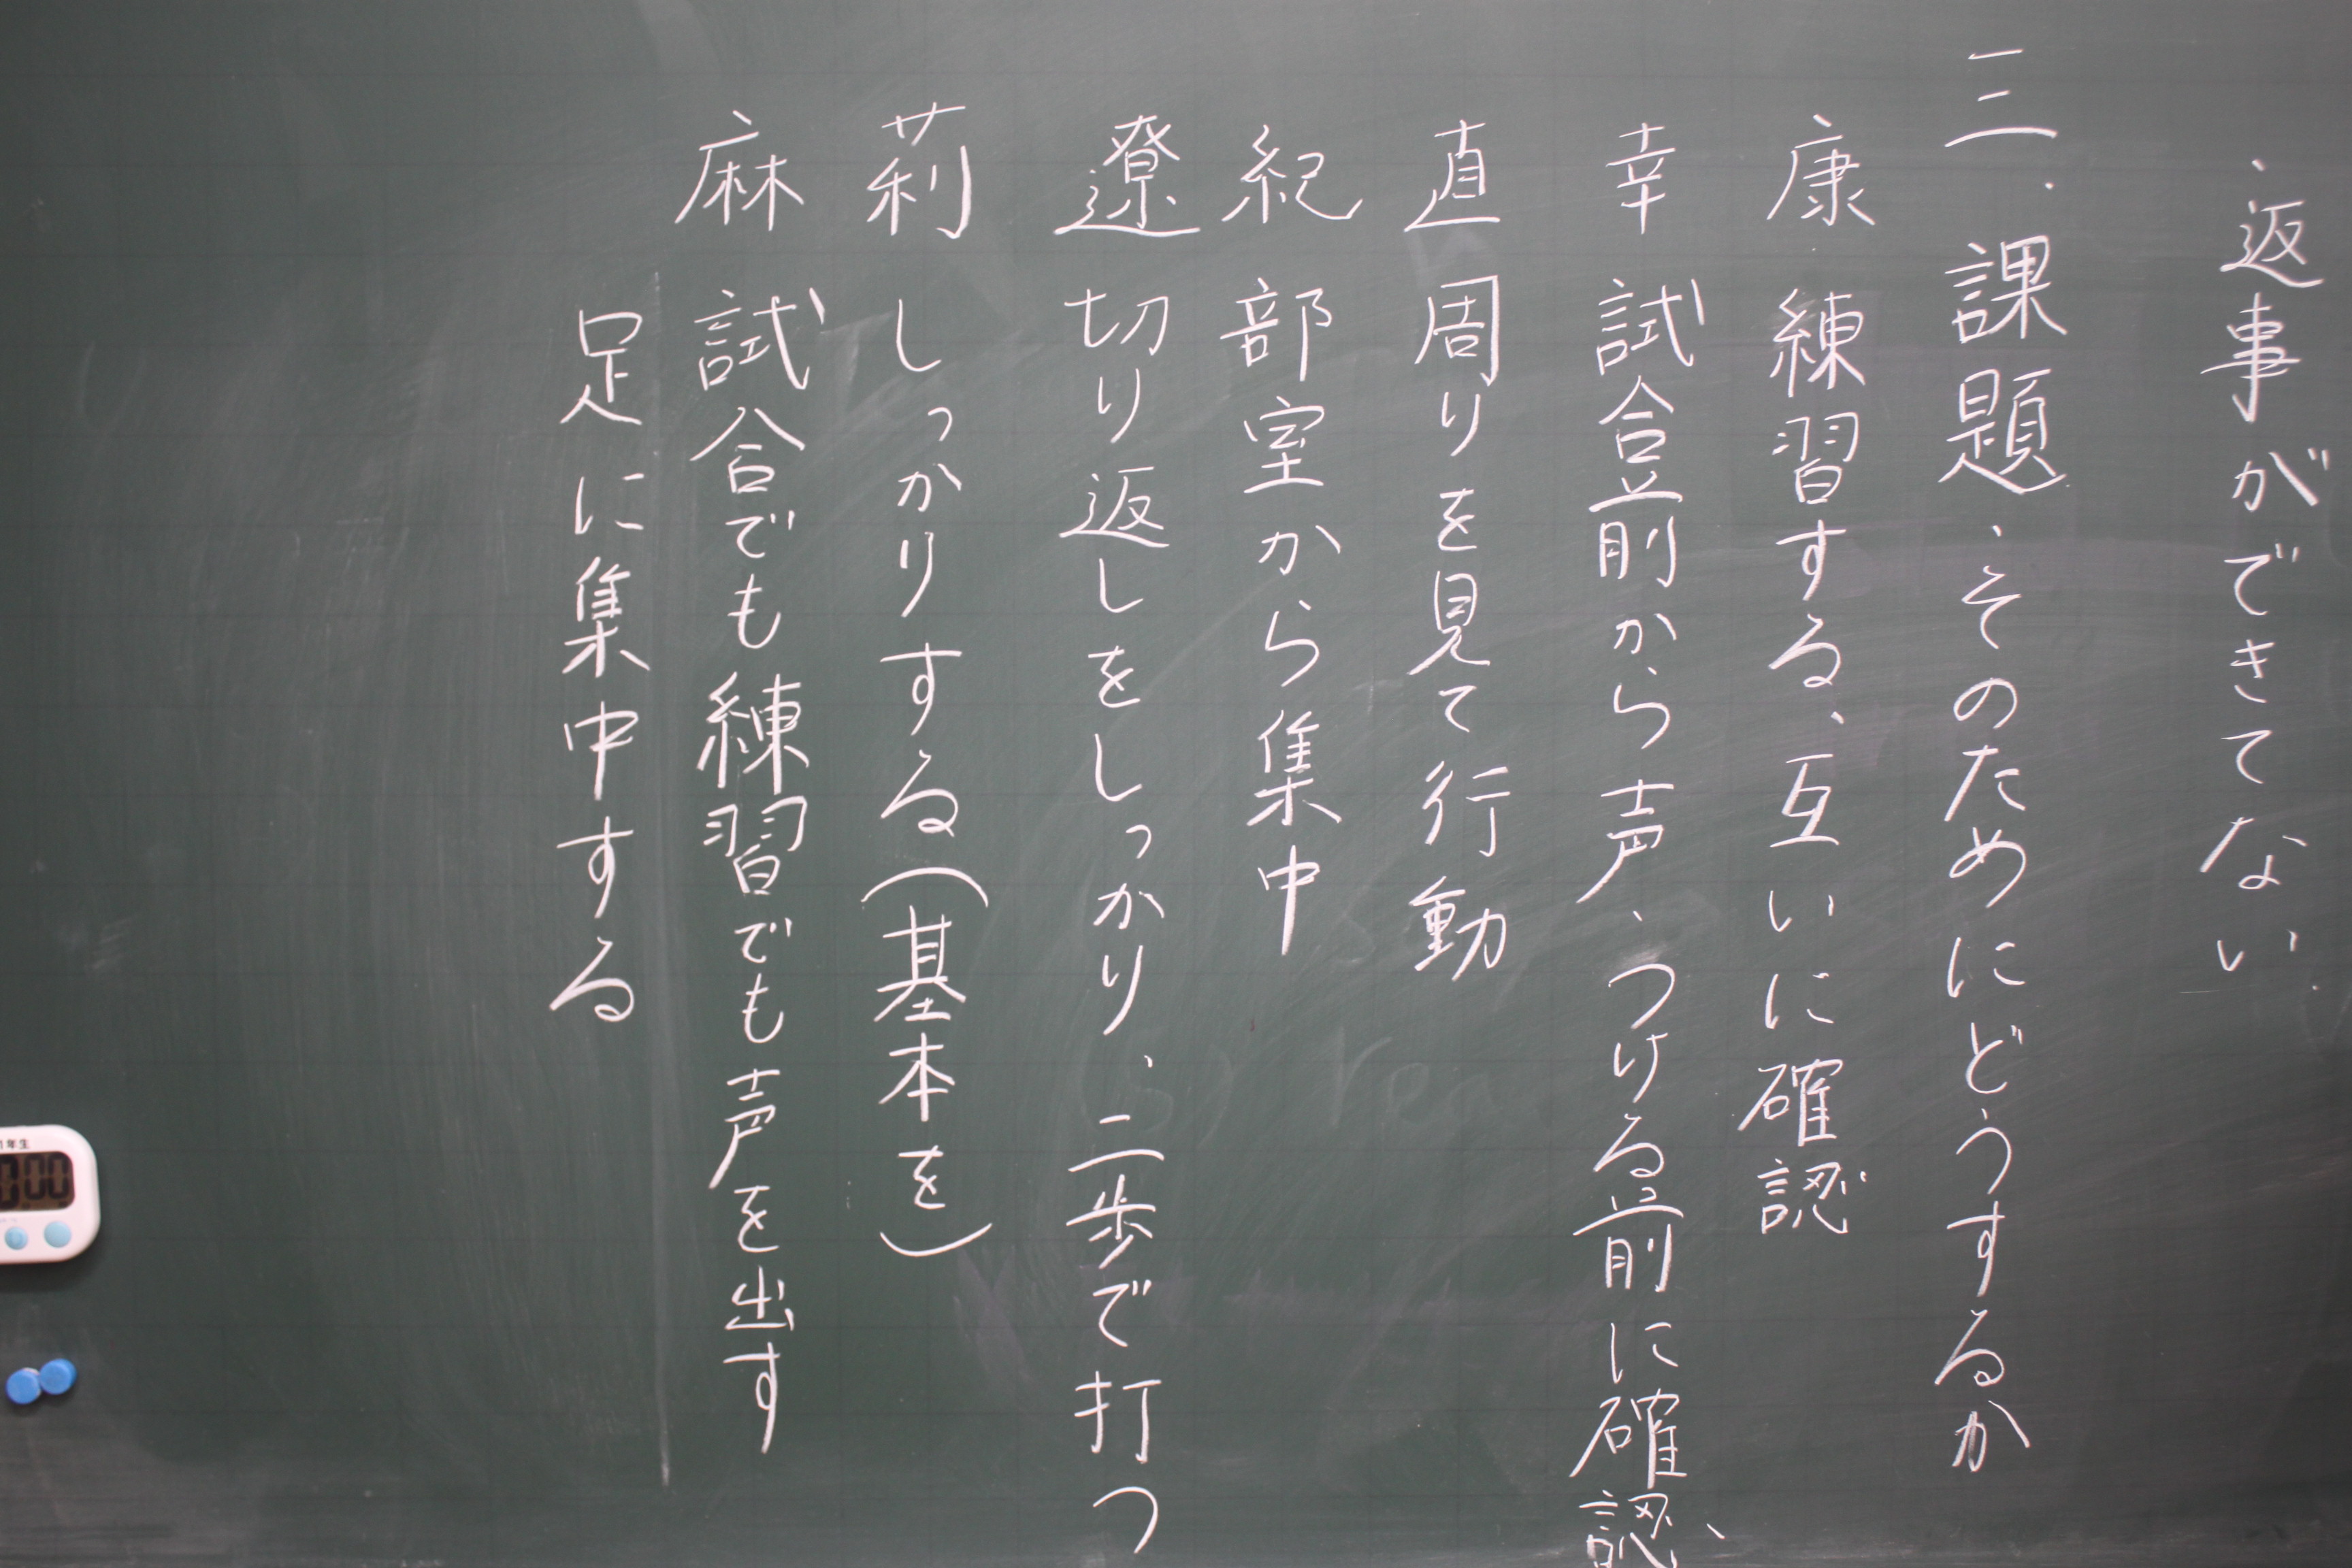 ・返事ができてない
三．課題・そのためにどうするか
康 練習する、互いに確認
幸 試合前から声、つける前に確認、
直 周りを見て行動
紀 部室から集中
遼 切り返しをしっかり、二歩で打つ
莉 しっかりする（基本を）
麻 試合でも練習でも声を出す
足に集中する
1年生
00